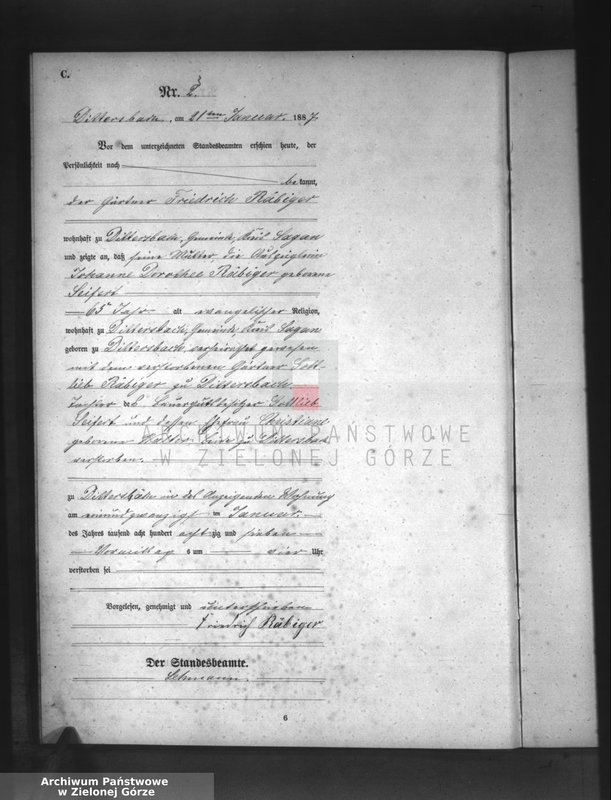 C.
Nr. 2
Dittersbach, am 21ten Januar 1887
Vor dem unterzeichneten Standesbeamten erschien heute, der
Persönlichkeit nach
bekannt,
der Gärtner Friedrich Räbiger
wohnhaft zu Dittersbach, Gemeinde, Kreis Sagan
und zeigte an, daß seine Mutter, die
Johanne Dorothee Räbiger geborene
Seifert
65 Jahr alt evangelischer Religion,
wohnhaft zu Dittersbach, Gemeinde, Kreis Sagan
geboren zu Dittersbach, verheirathet gewesen
mit dem verstorbenen Gärtner Gott-
lieb Räbiger zu Dittersbach
Tochter des Bauergutsbesitzer Gottlieb
Seifert und dessen Ehefrau Christiane
geborene beide zu Dittersbach
verstorben.
zu Dittersbach in des Anzeigenden Wohnung
am einundzwanzigsten Januar
des Jahres tausend acht hundert achtzig und sieben
Vormittags um vier Uhr
verstorben sei
Vorgelesen, genehmigt und unterschrieben
Friedrich Räbiger
Der Standesbeamte.
6
ARCHIWUM PAŃSTWOWE
W ZIELONEJ GÓRZE
Archiwum Państwowe
w Zielonej Górze